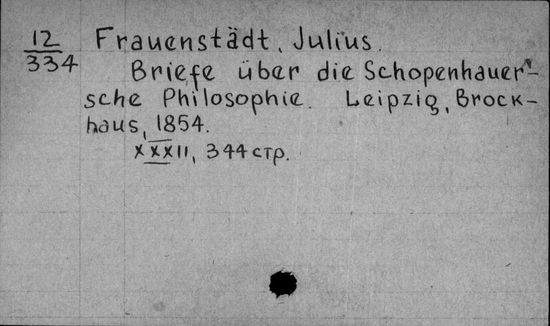 12
334
Frauenstädt, Julius.
Briefe über die Schopenhauer'-
sche Philosophie. Leipzig, Brock-
haus, 1854.
XXXII, 344 стр.